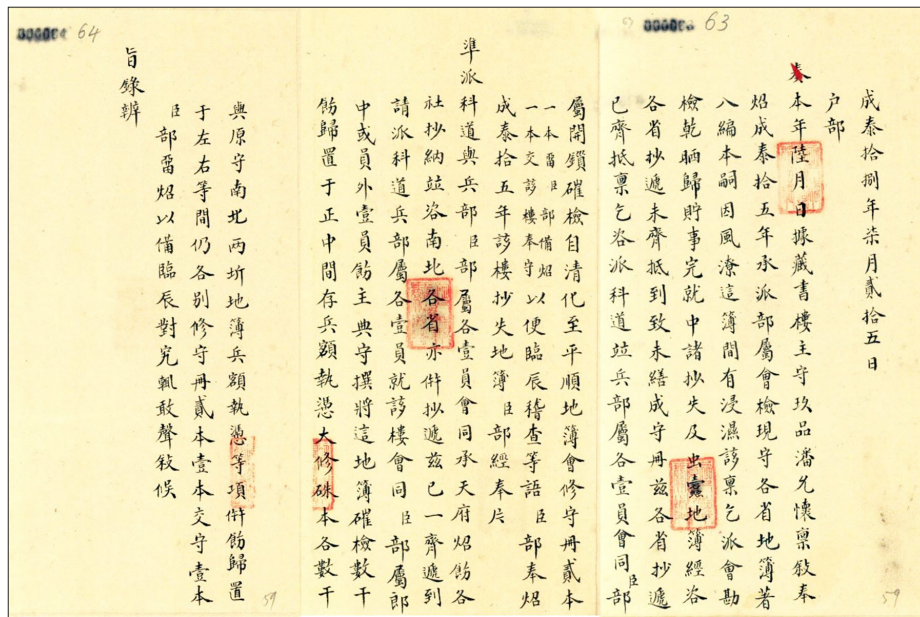 63
成泰拾捌年柒月貳拾五日
户部
奏本年陸月日據藏書樓主守玖品潘允懷稟敘奉
炤成泰拾五年承派部屬會檢現守各省地簿著
八編本嗣因風潦這簿間有浸濕該稟乞派會勘
檢乾晒歸貯事完就中諸抄失及出蠹地簿經咨
各省抄遞未齊抵到致未繕成守冊兹各省抄遞
已齊抵稟乞咨派科道並兵部屬各壹員會同臣部
屬開鎖確檢自清化至平順地簿會修守冊貳本
一本畱臣部備炤
一本交該樓奉守以便臨辰稽查等語臣部奉炤
成泰拾五年該樓抄失地簿臣部經奉片
準派科道與兵部臣部屬各壹員會同承天府炤飭各
社抄納並咨南北各省亦併抄遞兹已一齊遞到
請派科道兵部屬各壹員就該樓會同臣部屬郎
中或員外壹員飭主典守撰將這地簿確檢數干
飭歸置于正中間存兵額執憑大修硃本各數干
64
與原守南北两圻地簿兵額執憑等項併飭歸置
于左右等間仍各別修守冊貳本壹本交守壹本
臣部畱炤以備臨辰對究輒敢聲敘候
旨錄辦
59
59